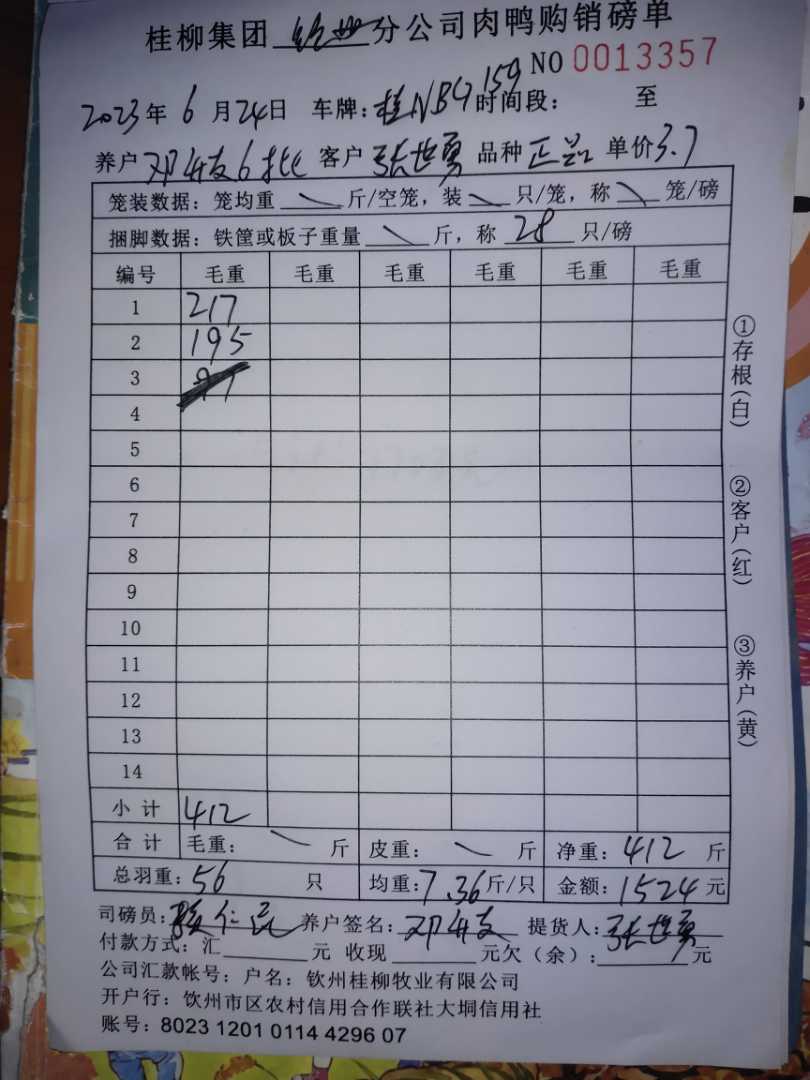 桂柳集团 钦州 分公司肉鸭购销磅单
NO 0013357
2023年6月24日 车牌：桂NBG159 时间段： 至
养户 邓 友6批 客户 张世勇 品种 正品 单价3.7
笼装数据：笼均重 \ 斤/空笼，装 \ 只/笼，称 \ 笼/磅
捆脚数据：铁筐或板子重量 \ 斤，称 28 只/磅
编号 毛重 毛重 毛重 毛重 毛重 毛重
1 217
2 195
3
4
5
6
7
8
9
10
11
12
13
14
小计 412
合计 毛重： \ 斤 皮重： \ 斤 净重：412 斤
总羽重：56 只 均重：7.36斤/只 金额：1524元
司磅员： 仁 养户签名：邓 友 提货人：张世勇
付款方式：汇 元 收现 元欠（余）： 元
公司汇款帐号：户名：钦州桂柳牧业有限公司
开户行：钦州市区农村信用合作联社大垌信用社
账号：8023 1201 0114 4296 07
①存根（白）
②客户（红）
③养户（黄）